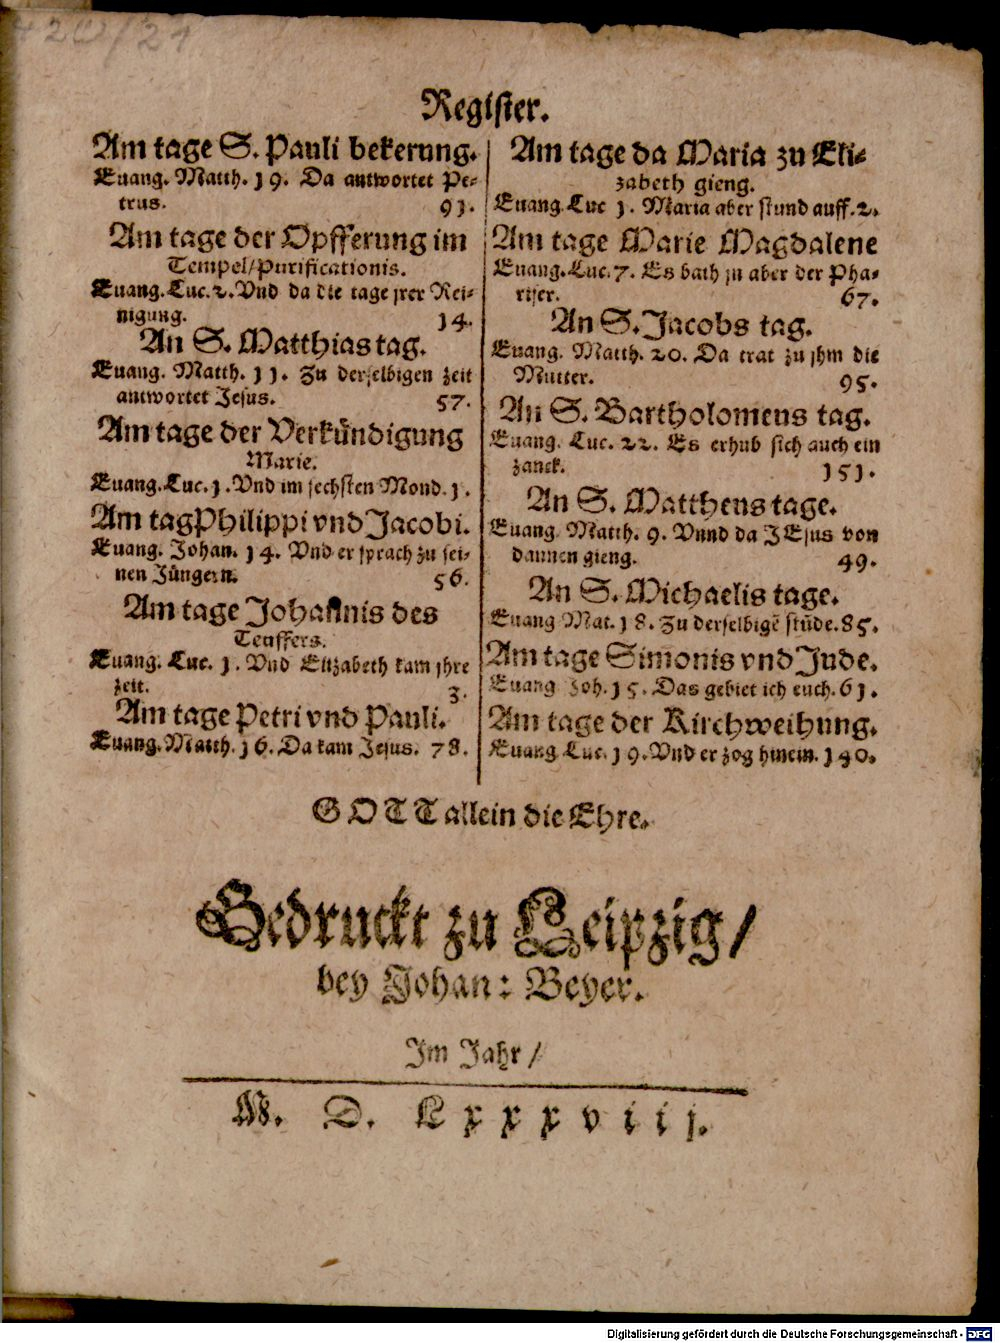 420/21
Register.
Am tage S. Pauli bekerung.
Euang. Matth. 19. Da antwortet Pe-
trus. 93.
Am tage der Opfferung im
Tempel/Purificationis.
Euang. Luc. 2. Vnd da die tage jrer Rei-
nigung. 14.
An S. Matthias tag.
Euang. Matth. 11. Zu derselbigen zeit
antwortet Jesus. 57.
Am tage der Verkündigung
Marie.
Euang. Luc. 1. Vnd im sechsten Mond. 1.
Am tag Philippi vnd Jacobi.
Euang. Johan. 14. Vnd er sprach zu sei-
nen Jüngern. 56.
Am tage Johannis des
Teuffers.
Euang. Luc. 1. Vnd Elizabeth kam jhre
zeit. 3.
Am tage Petri vnd Pauli.
Euang. Matth. 16. Da kam Jesus. 78.
Am tage da Maria zu Eli-
zabeth gieng.
Euang. Luc 1. Maria aber stund auff. 2.
Am tage Marie Magdalene
Euang. Luc. 7. Es bath jn aber der Pha-
riser. 67.
An S. Jacobs tag.
Euang. Matth. 20. Da trat zu jhm die
Mutter. 95.
An S. Bartholomeus tag.
Euang. Luc. 22. Es erhub sich auch ein
zanck. 151.
An S. Mattheus tage.
Euang. Matth. 9. Vnnd da JEsus von
dannen gieng. 49.
An S. Michaelis tage.
Euang Mat. 18. Zu derselbigē stūde. 85.
Am tage Simonis vnd Jude.
Euang Joh. 15. Das gebiet ich euch. 61.
Am tage der Kirchweihung.
Euang. Luc. 19. Vnd er zog hinein. 140.
GOTT allein die Ehre.
Gedruckt zu Leipzig/
bey Johan: Beyer.
Im Jahr/
M. D. Lxxxviij.
Digitalisierung gefördert durch die Deutsche Forschungsgemeinschaft - DFG